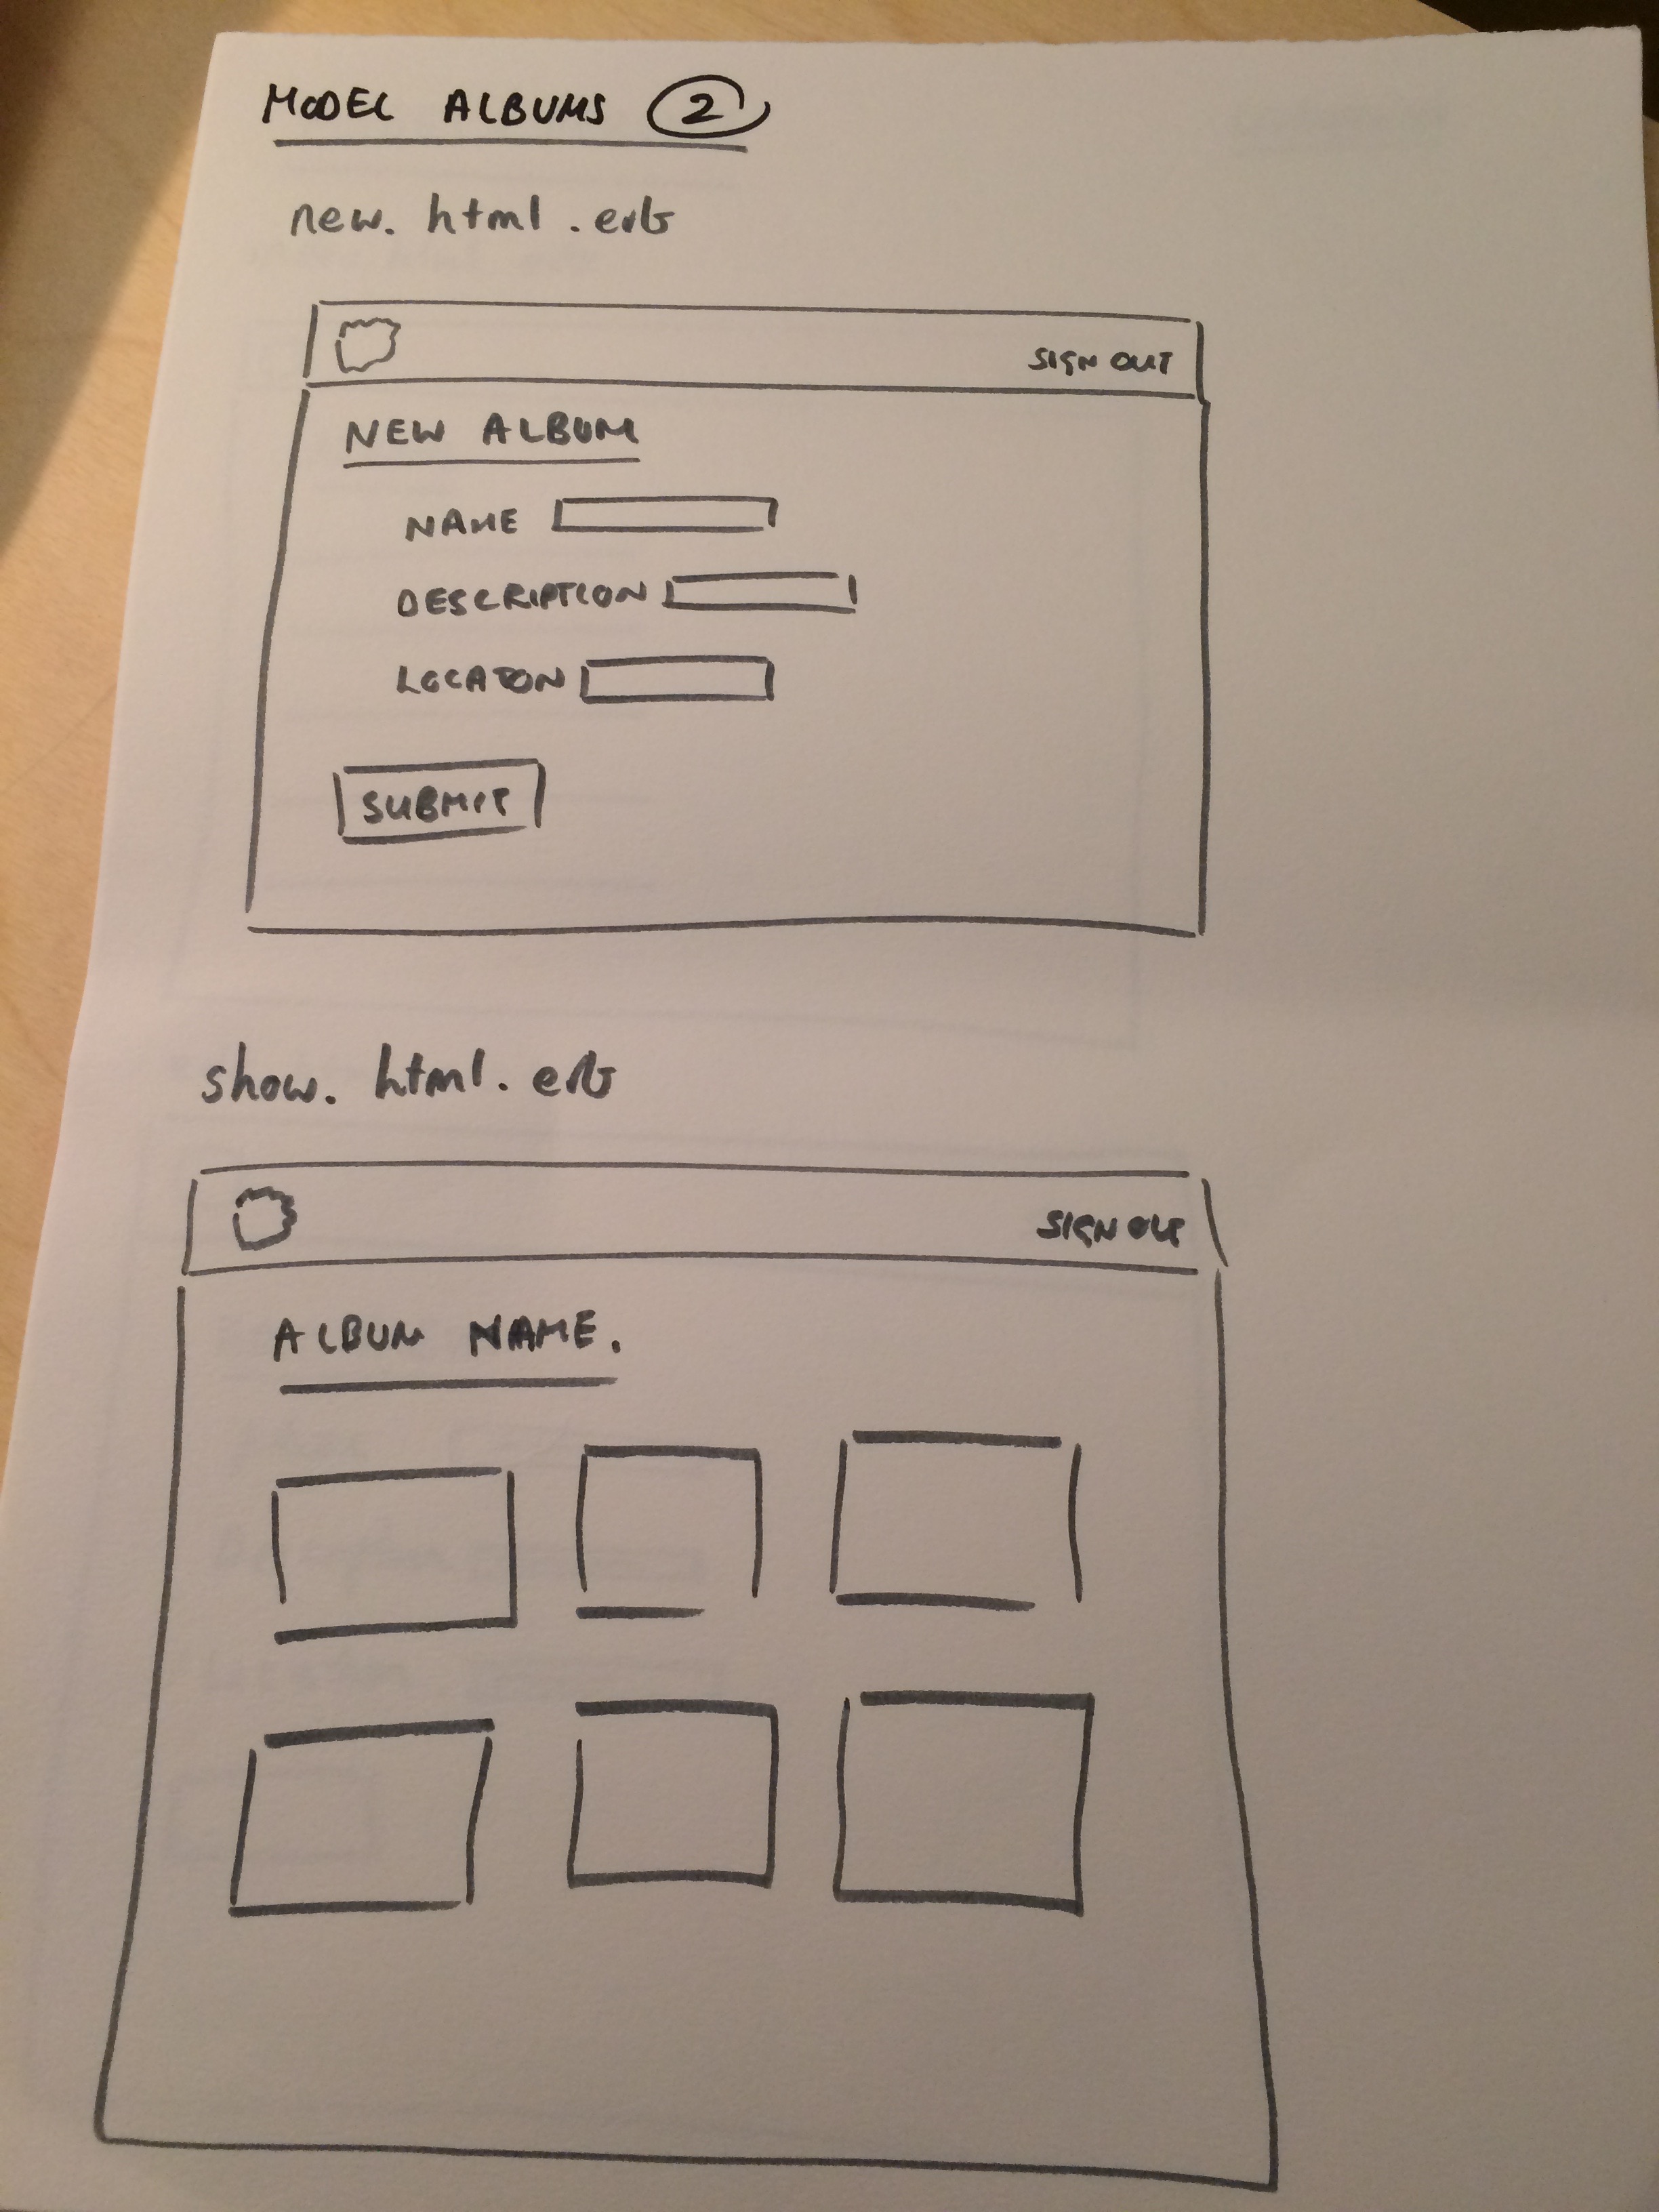 MODEL ALBUMS 2
new. html .erb
SIGN OUT
NEW ALBUM
NAME
DESCRIPTION
LOCATON
SUBMIT
show. html. erb
SIGN OUT
ALBUM NAME.